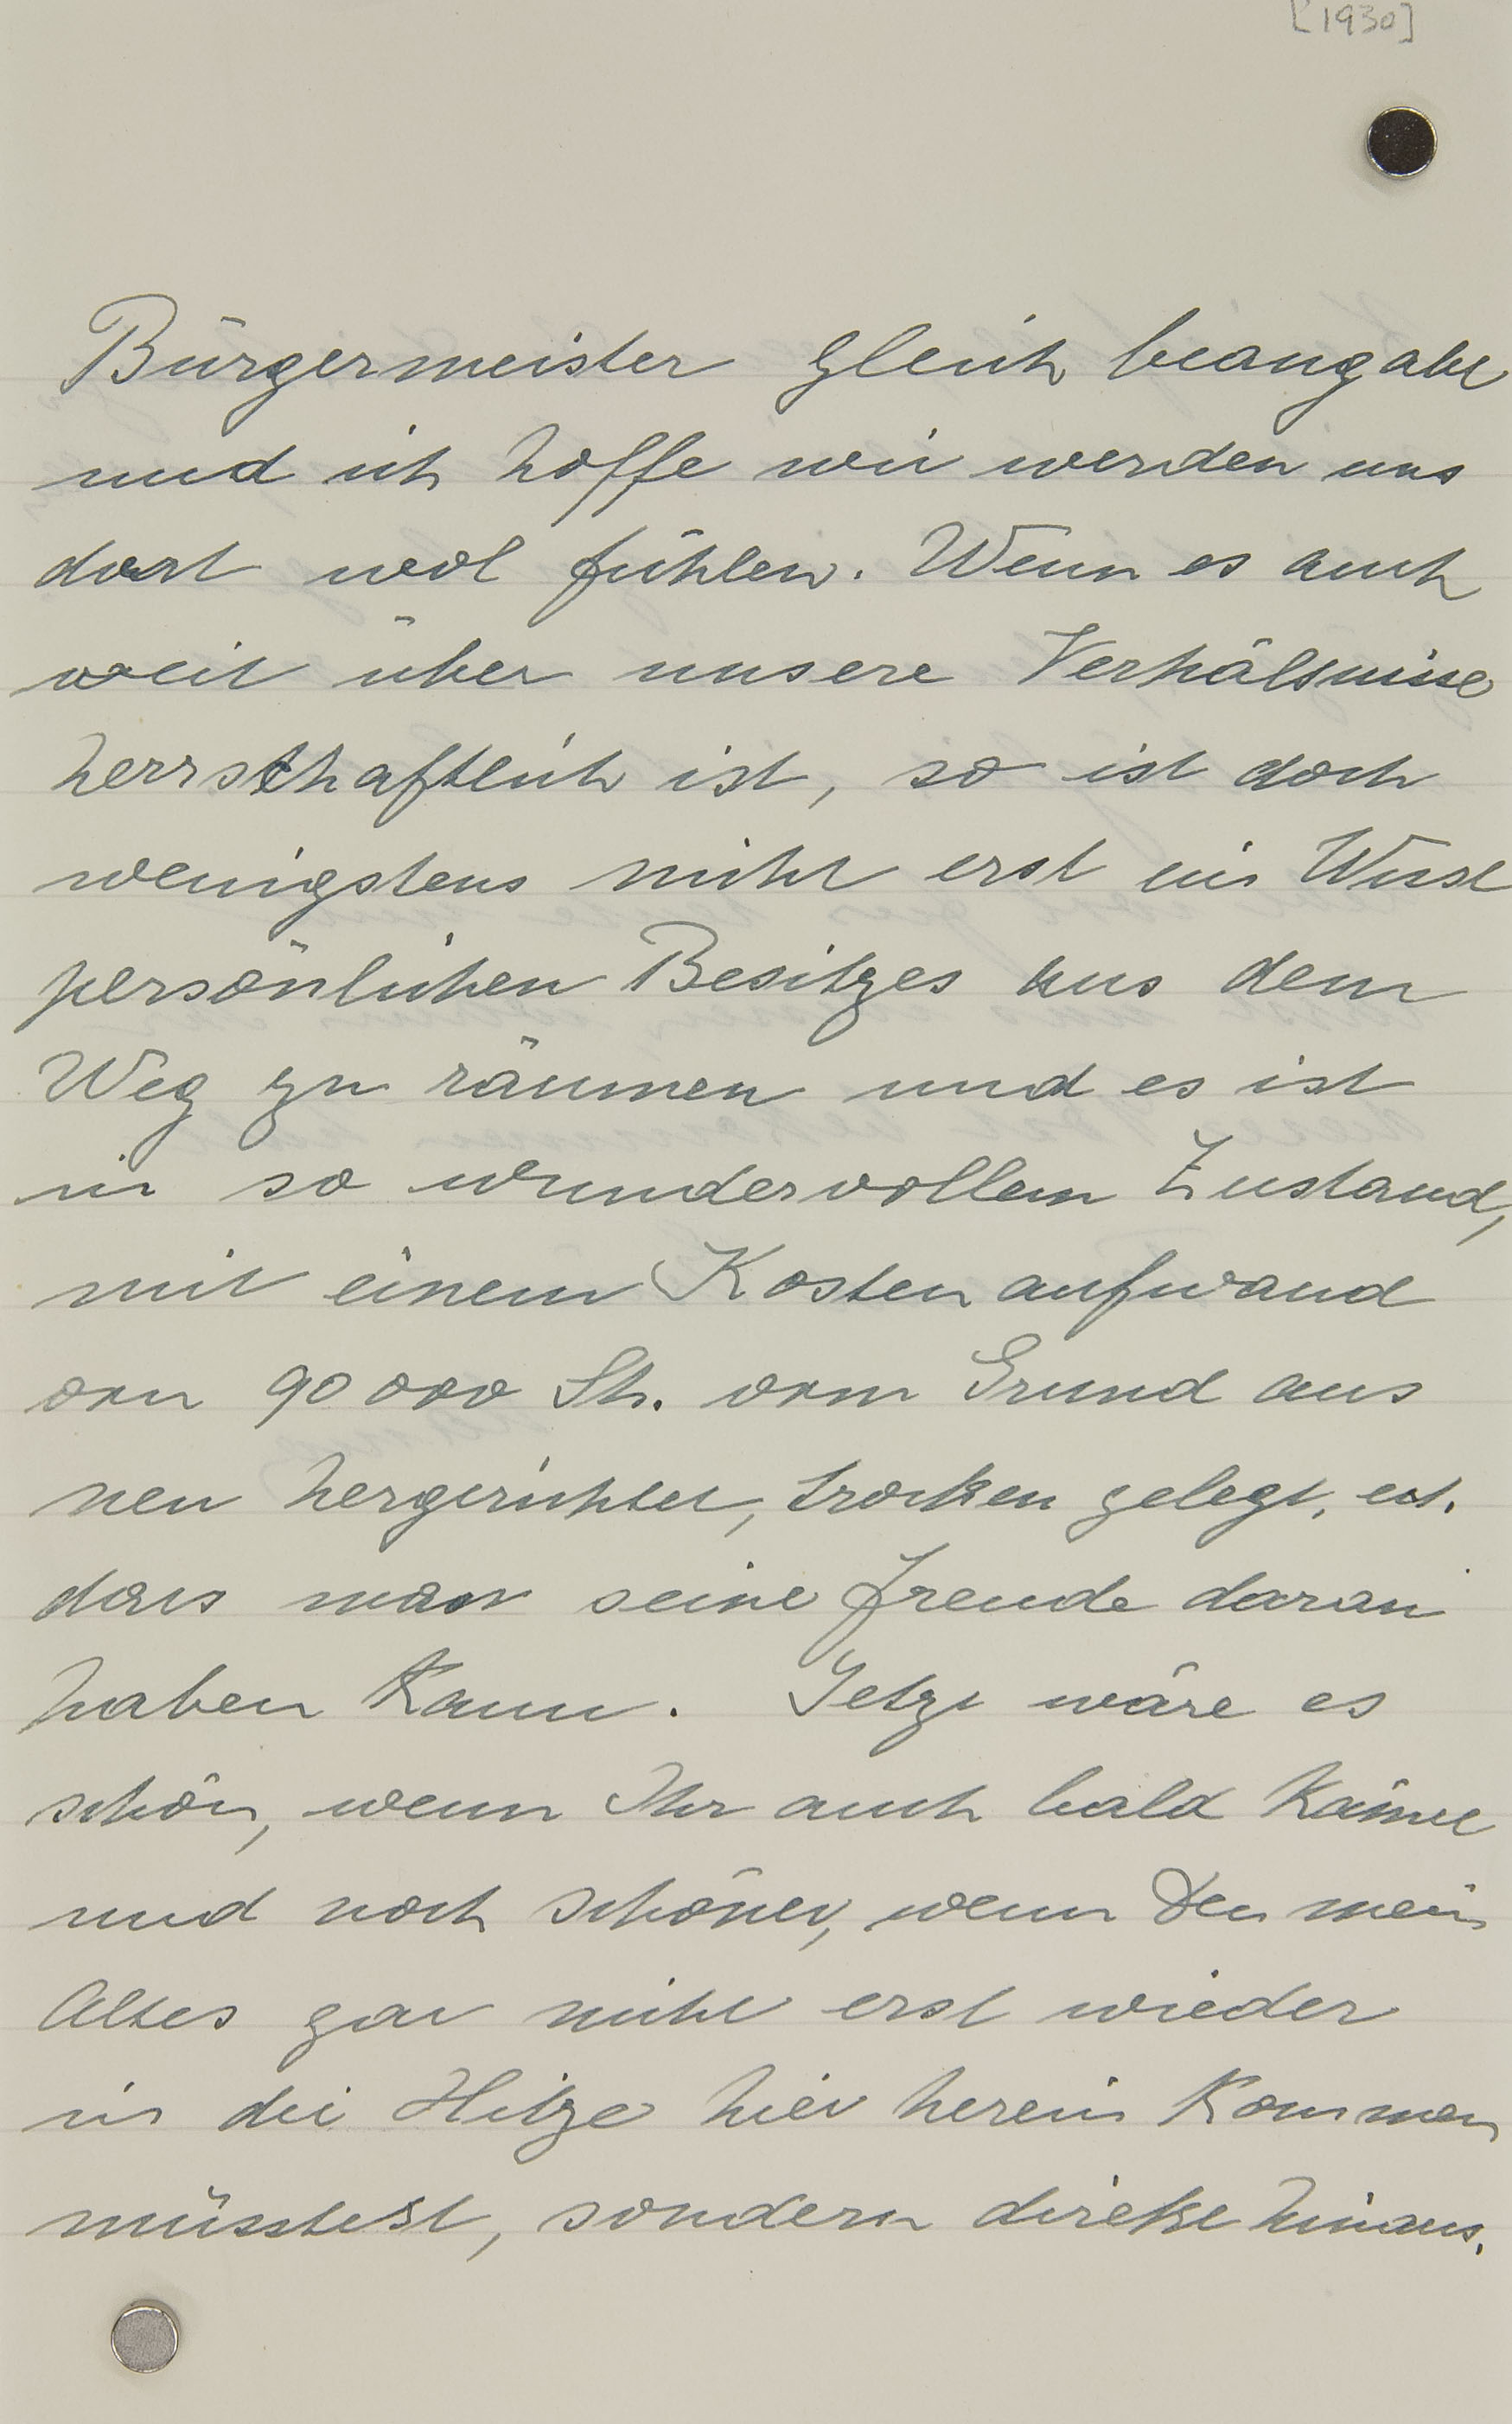 [1930]
Bürgermeister gleich beangabe
und ich hoffe wir werden uns
dort wol fühlen. Wenn es auch
weit über unsere Verhältnisse
herrschaftlich ist, so ist doch
wenigstens nicht erst ein Wust
persönlichen Besitzes aus dem
Weg zu räumen und es ist
in so wundervollem Zustand,
mit einem Kostenaufwand
von 90 000 Sh. vom Grund aus
neu hergerichtet, trocken gelegt, ect.
dass man seine Freude daran
haben kann. Jetzt wäre es
schön, wenn Ihr auch bald kämet
und noch schöner, wenn Du mein
Altes gar nicht erst wieder
in die Hitze hier herein kommen
müsstest, sondern direkt hinaus.